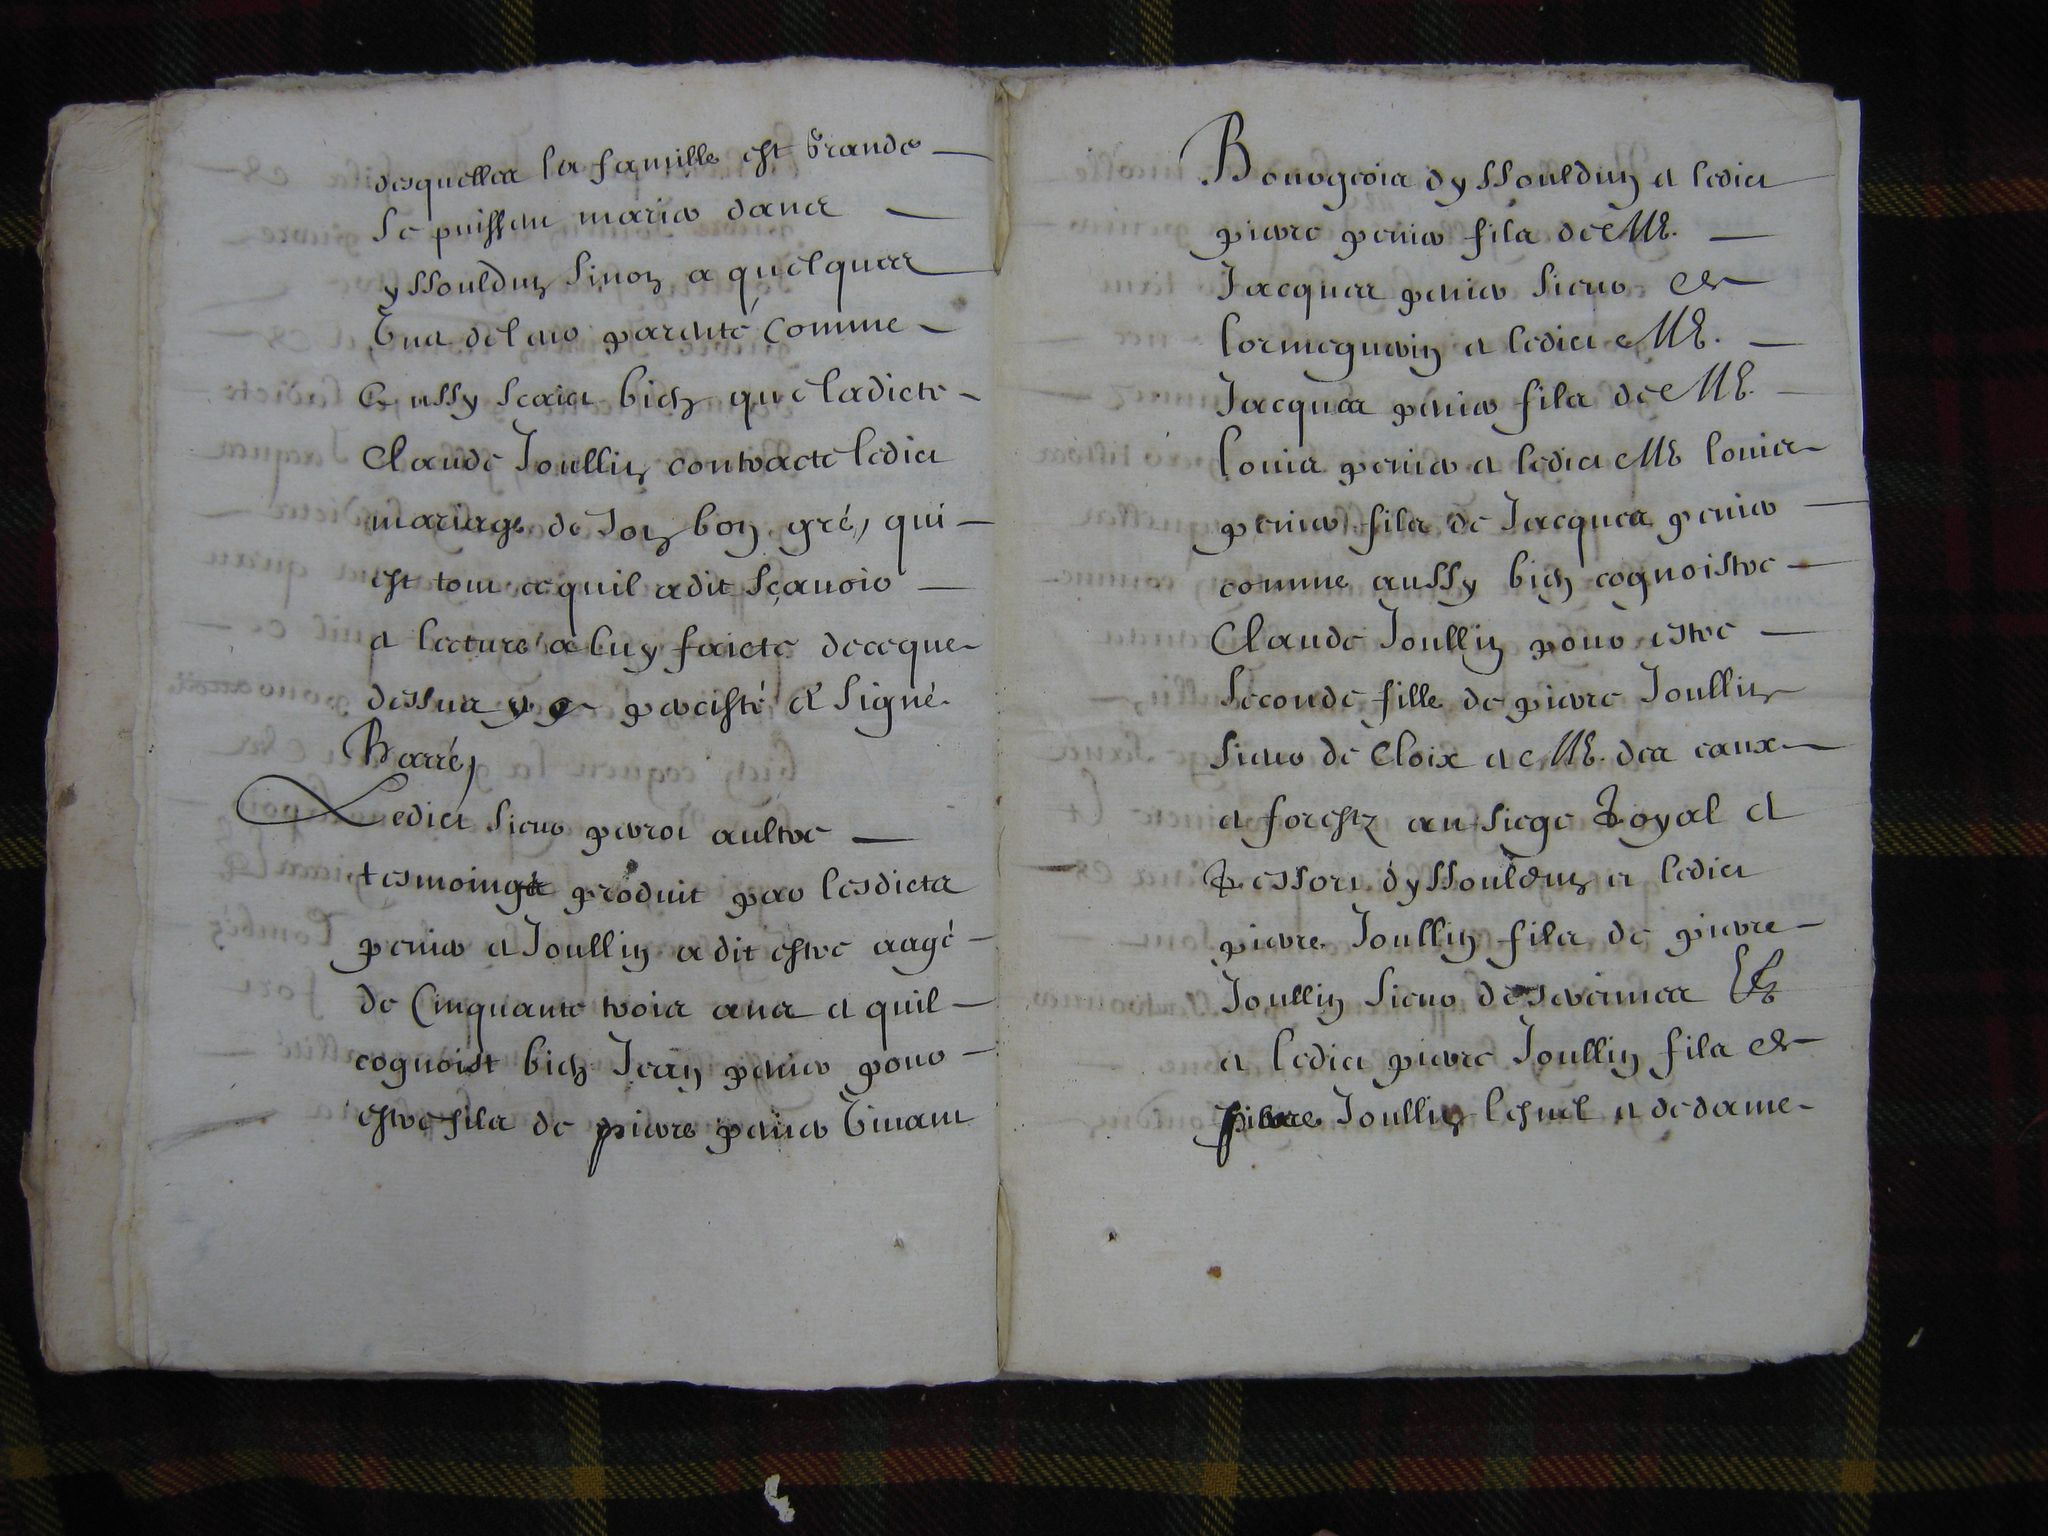 desquelles la famille est grande
se puissent marier dans
yssouldun sinon a quelques
uns de leur parenté comme
Aussy scait bien que ladicte
Claude Joullin contracte ledict
mariage de son bon gré, qui
est tout ce quil a dit sçavoir
et lecture a luy faicte de ce que
dessus y a percisté et signé.
Barré,
Ledict sieur perrot aultre
tesmoing produit par lesdicts
perier et Joullin a dit estre aagé
de Cinquante trois ans et quil
cognoist bien Jean perier pour
estre fils de pierre perier vivant
Bourgeois dyssouldun et ledict
pierre perier fils de Me.
Jacques perier sieur de
lormeguerin et ledict Me.
Jacques perier fils de Me.
louis perier et ledict Me louis
perier fils de Jacques perier
comme aussy bien cognoistre
Claude Joullin pour estre
seconde fille de pierre Joullin
sieur de Cloix et Me. des eaux
et forestz au siege Royal et
Ressort dyssouldun et ledict
pierre Joullin fils de pierre
Joullin sieur de
et ledict pierre Joullin fils de
pierre Joullin lesnel et de dame